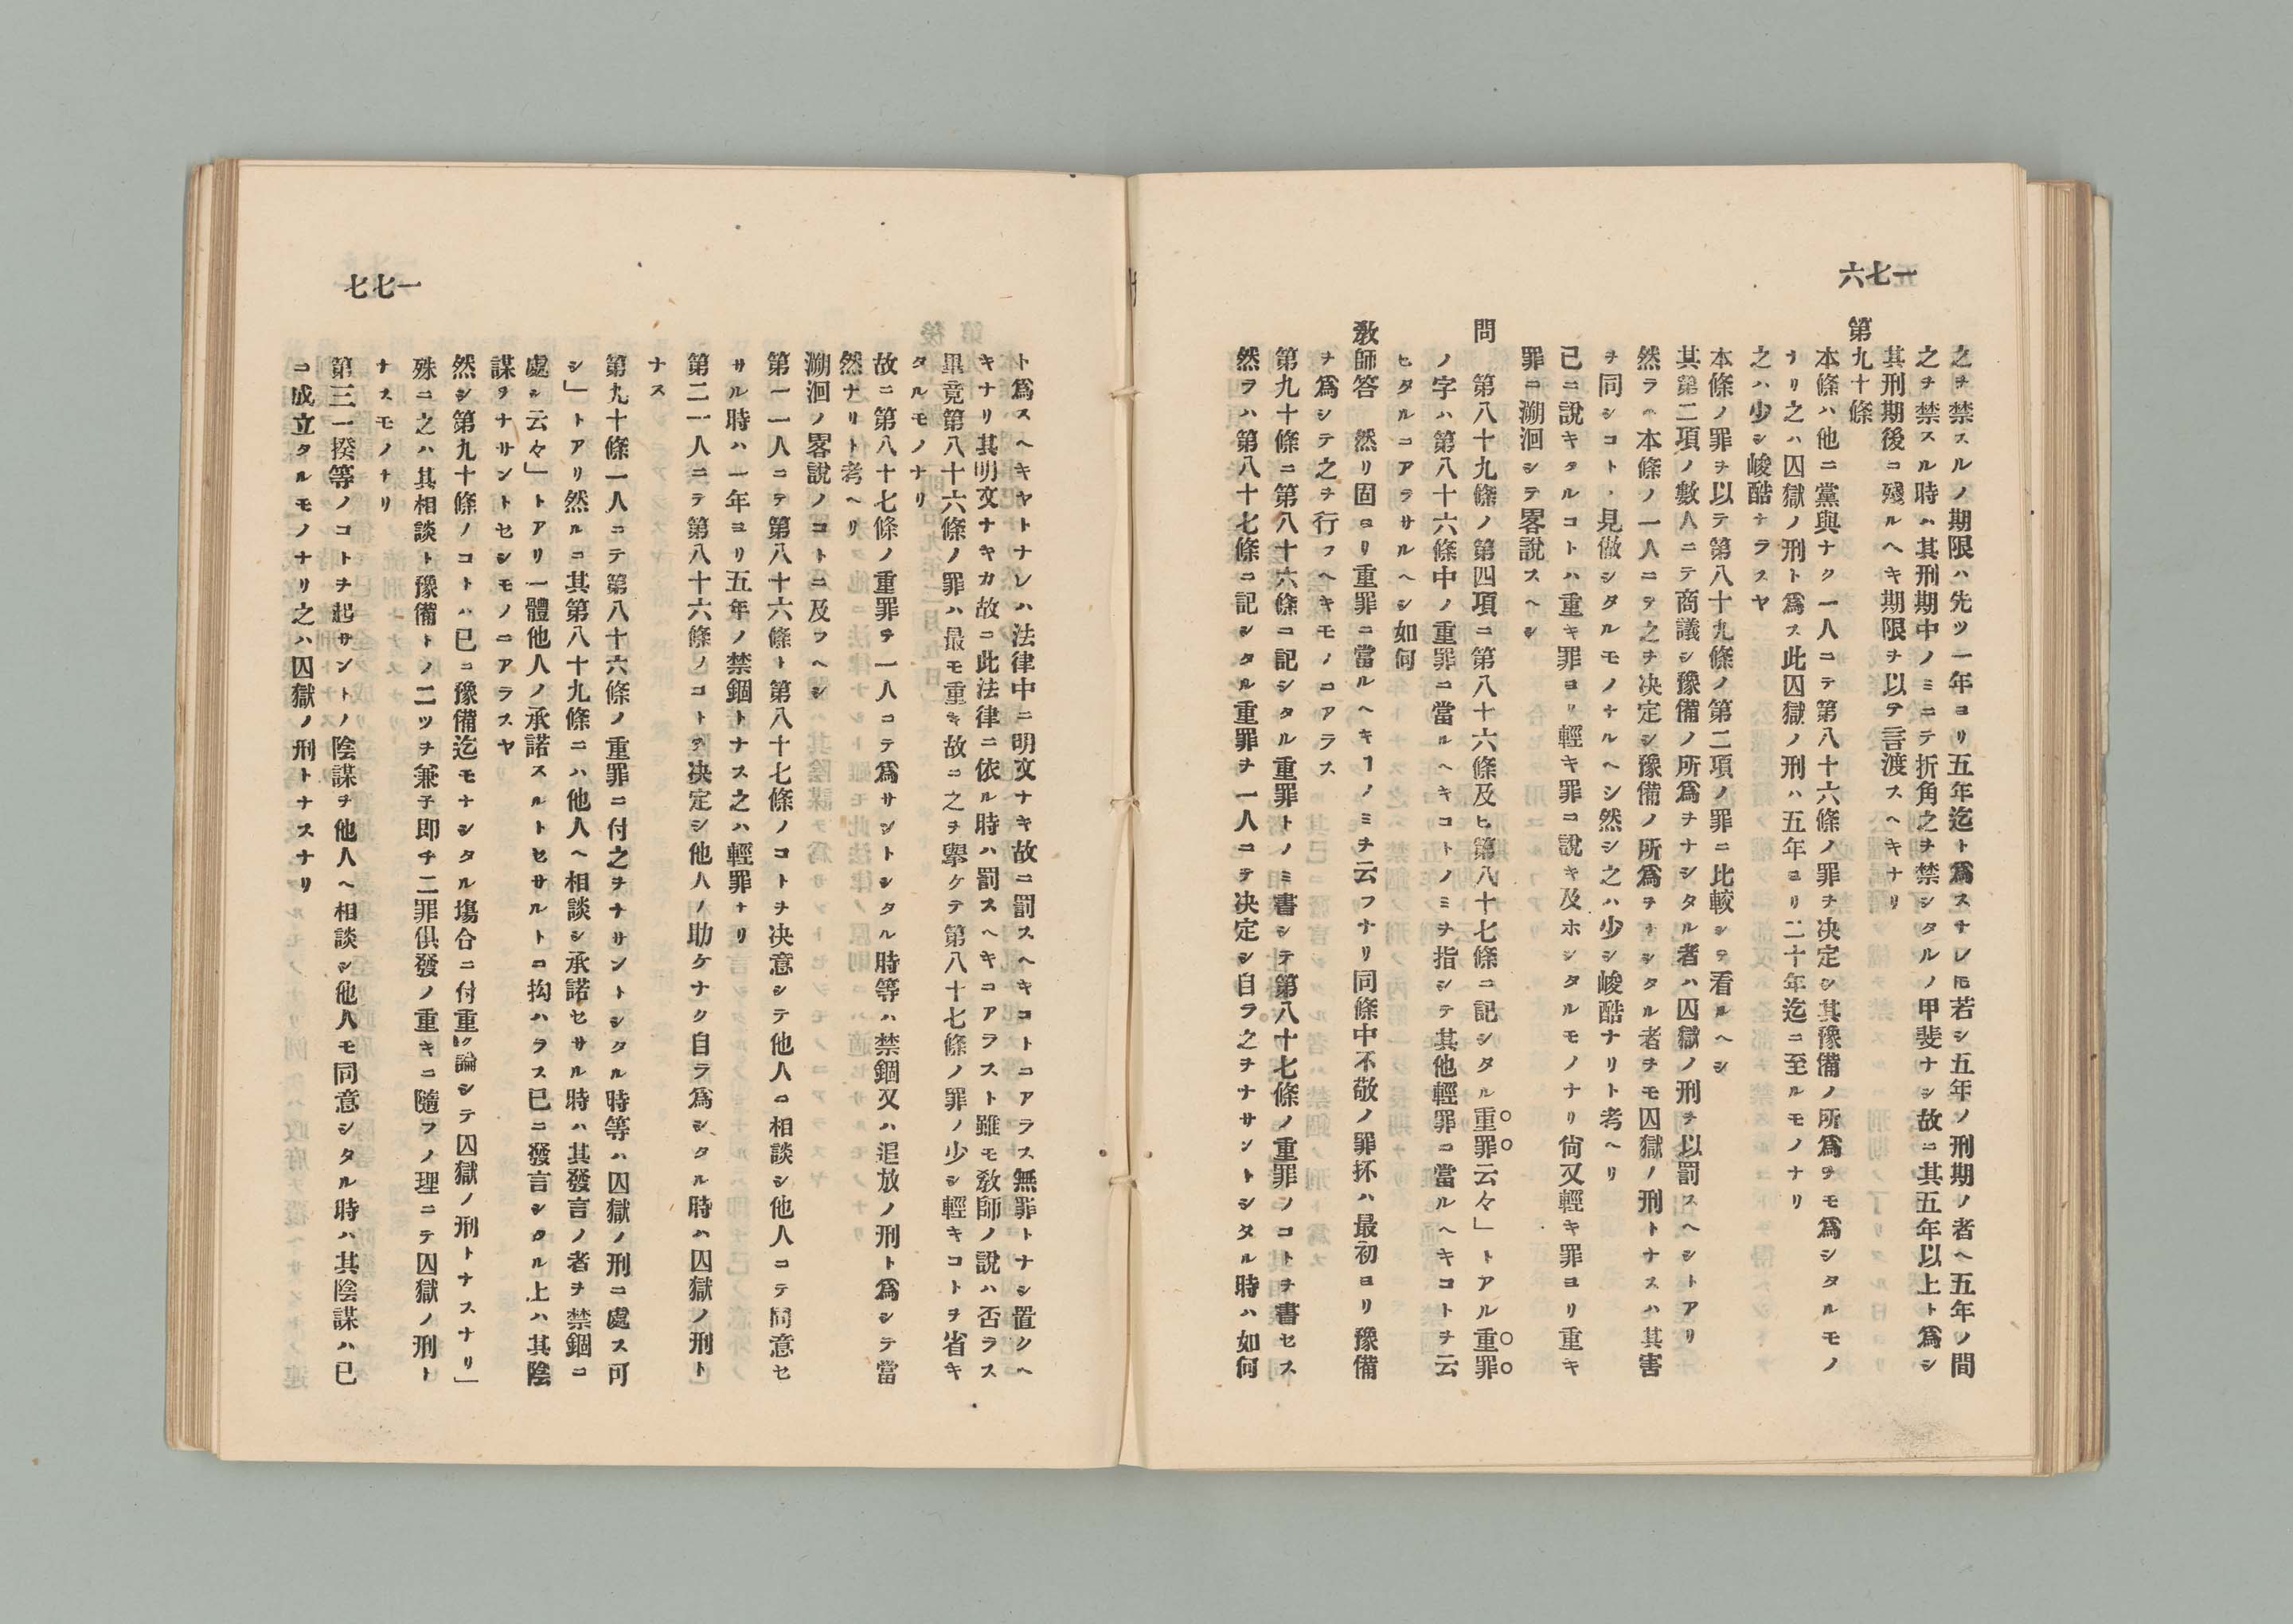 一七六
之ヲ禁スルノ期限ハ先ツ一年ヨリ五年迄ト爲スナレ𪜈若シ五年ノ刑期ノ者ヘ五年ノ間
之ヲ禁スル時ハ其刑期中ノミニテ折角之ヲ禁シタルノ甲斐ナシ故ニ其五年以上ト爲シ
其刑期後ニ殘ルヘキ期限ヲ以テ言渡スヘキナリ
第九十條
本條ハ他ニ黨與ナク一人ニテ第八十六條ノ罪ヲ決定シ其豫備ノ所爲ヲモ爲シタルモノ
ナリ之ハ囚獄ノ刑ト爲ス此囚獄ノ刑ハ五年ヨリ二十年迄ニ至ルモノナリ
之ハ少シ峻酷ナラスヤ
本條ノ罪ヲ以テ第八十九條ノ第二項ノ罪ニ比較シヲ看ルヘシ
其第二項ノ數人ニテ商議シ豫備ノ所爲ヲナシタル者ハ囚獄ノ刑ヲ以罰スヘシトアリ
然ラハ本條ノ一人ニテ之ヲ決定シ豫備ノ所爲ヲナシタル者ヲモ囚獄ノ刑トナスハ其害
ヲ同シコト、見做シタルモノナルヘシ然シ之ハ少シ峻酷ナリト考ヘリ
已ニ說キタルコトハ重キ罪ヨリ輕キ罪ニ說キ及ホシタルモノナリ尙又輕キ罪ヨリ重キ
罪ニ溯洄シテ畧說スヘシ
問　第八十九條ノ第四項ニ第八十六條及ヒ第八十七條ニ記シタル重罪云々」トアル重罪
ノ字ハ第八十六條中ノ重罪ニ當ルヘキコトノミヲ指シテ其他輕罪ニ當ルヘキコトヲ云
ヒタルニアラサルヘシ如何
敎師答　然リ固ヨリ重罪ニ當ルヘキヿノミヲ云フナリ同條中不敬ノ罪抔ハ最初ヨリ豫備
ヲ爲シテ之ヲ行フヘキモノニアラス
第九十條ニ第八十六條ニ記シタル重罪トノミ書シテ第八十七條ノ重罪ノコトヲ書セス
然ラハ第八十七條ニ記シタル重罪ヲ一人ニテ決定シ自ラ之ヲナサントシタル時ハ如何
一七七
ト爲スヘキヤトナレハ法律中ニ明文ナキ故ニ罰スヘキコトニアラス無罪トナシ置クヘ
キナリ其明文ナキカ故ニ此法律ニ依ル時ハ罰スヘキニアラスト雖モ敎師ノ說ハ否ラス
畢竟第八十六條ノ罪ハ最モ重キ故ニ之ヲ擧ケテ第八十七條ノ罪ノ少シ輕キコトヲ省キ
タルモノナリ
故ニ第八十七條ノ重罪ヲ一人ニテ爲サントシタル時等ハ禁錮又ハ追放ノ刑ト爲シテ當
然ナリト考ヘリ
溯洄ノ畧說ノコトニ及フヘシ
第一一人ニテ第八十六條ト第八十七條ノコトヲ决意シテ他人ニ相談シ他人ニテ同意セ
サル時ハ一年ヨリ五年ノ禁錮トナス之ハ輕罪ナリ
第二一人ニテ第八十六條ノコトヲ决定シ他人ノ助ケナク自ラ爲シタル時ハ囚獄ノ刑ト
ナス
第九十條一人ニテ第八十六條ノ重罪ニ付之ヲナサントシタル時等ハ囚獄ノ刑ニ處ス可
シ」トアリ然ルニ其第八十九條ニハ他人ヘ相談シ承諾セサル時ハ其發言ノ者ヲ禁錮ニ
處シ云々」トアリ一體他人ノ承諾スルトセサルトニ拘ハラス已ニ發言シタル上ハ其陰
謀ヲナサントセシモノニアラスヤ
然シ第九十條ノコトハ已ニ豫備迄モナシタル塲合ニ付重ク論シテ囚獄ノ刑トナスナリ」
殊ニ之ハ其相談ト豫備トノ二ツヲ兼子即チ二罪俱發ノ重キニ隨フノ理ニテ囚獄ノ刑ト
ナスモノナリ
第三一揆等ノコトヲ起サントノ陰謀ヲ他人ヘ相談シ他人モ同意シタル時ハ其陰謀ハ已
ニ成立タルモノナリ之ハ囚獄ノ刑トナスナリ